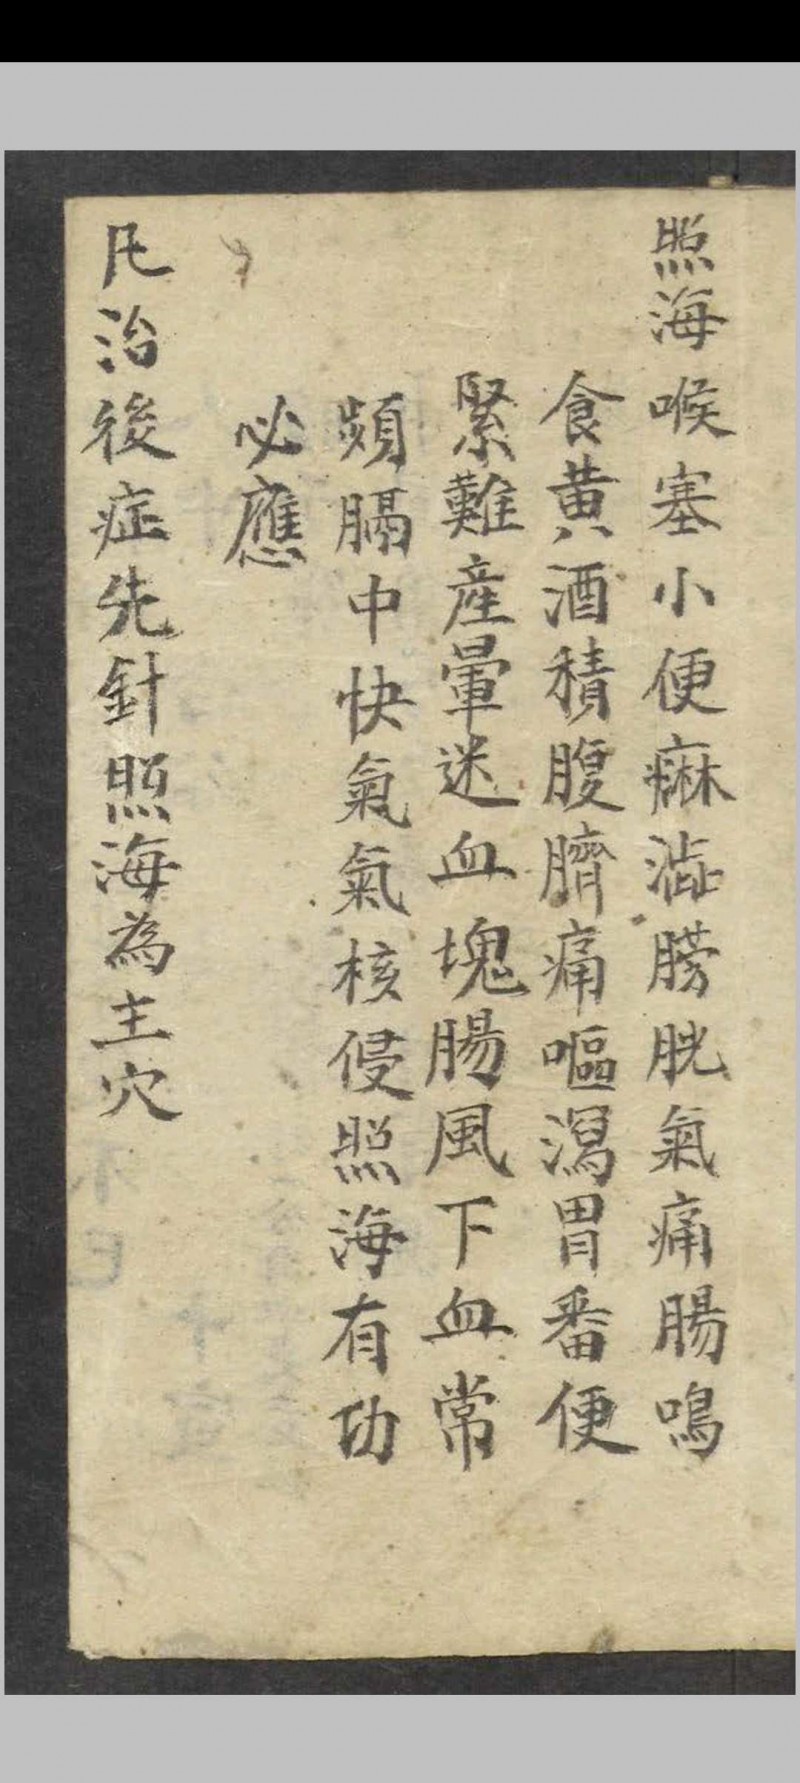 照海喉塞小便痳澁膀胱氣痛腸鳴
食黄酒積腹臍痛嘔瀉胃番便
緊難産暈迷血塊腸風下血常
頻膈中快氣氣核侵照海有功
必應
凡治後症先針照海為主穴